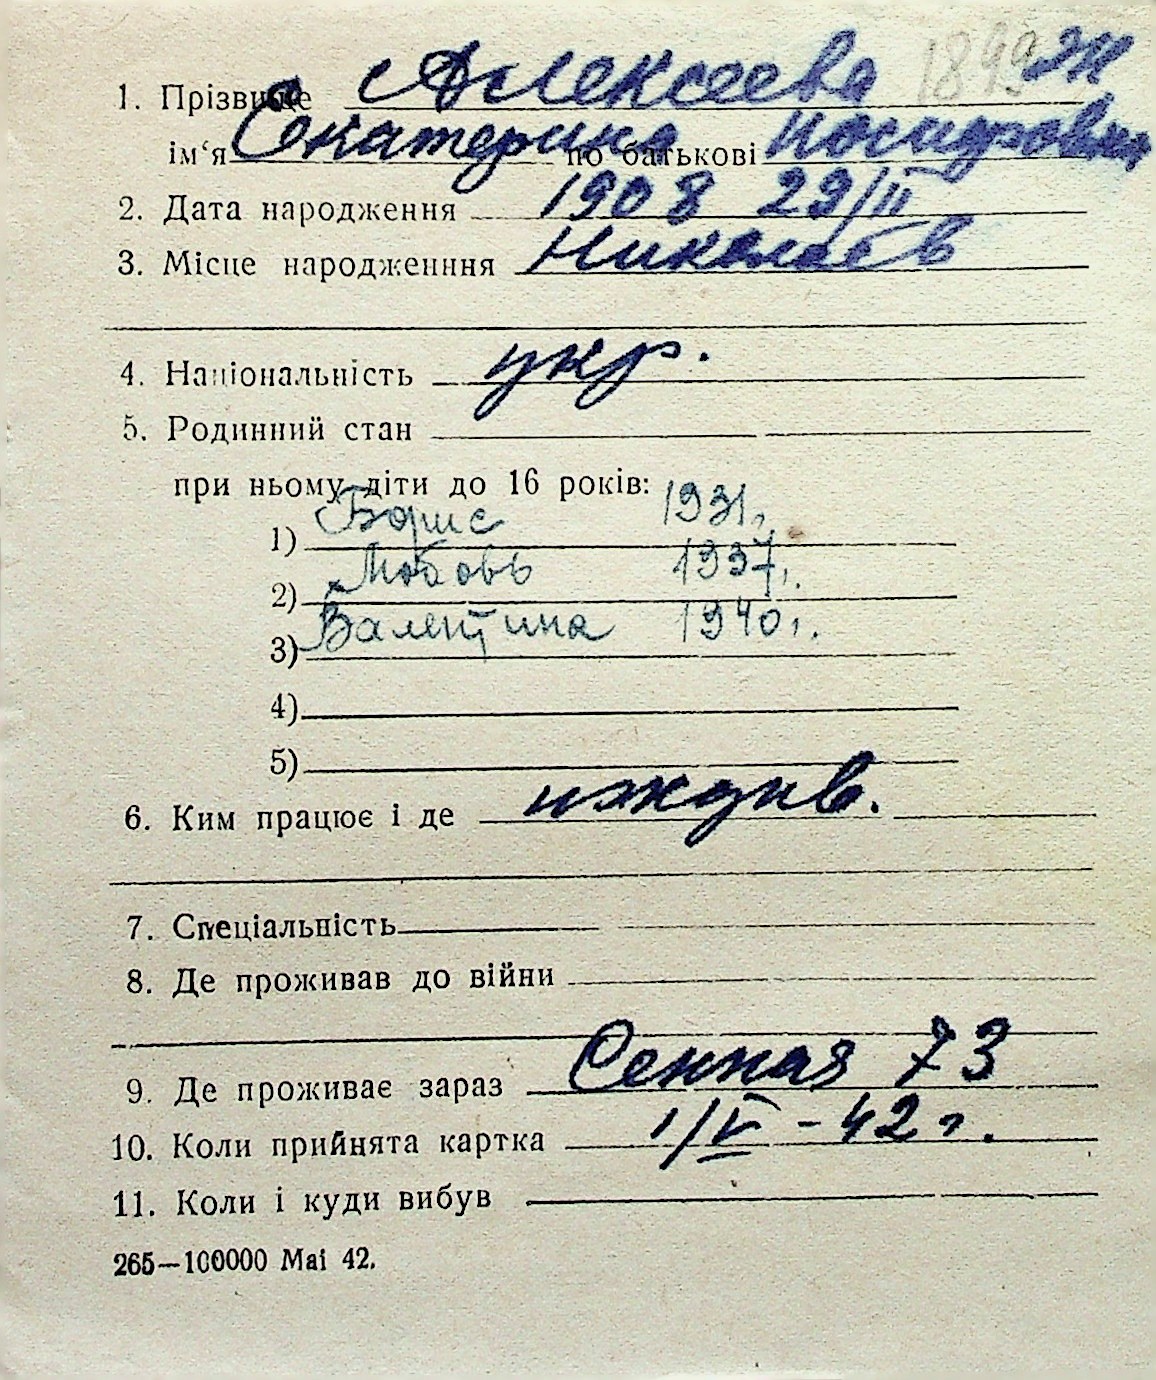 1899 ж
1. Прізвище Алексеева
ім‘я Екатерина по батькові
2. Дата народження 1908 29/II
3. Місце народженння Николаев
4. Національність укр.
5. Родинний стан
при ньому діти до 16 років:
1) Борис 1931г.
2) Любовь 1937г.
3) Валентина 1940г.
4)
5)
6. Ким працює і де иждив.
7. Спеціальність
8. Де проживав до війни
9. Де проживає зараз Сенная 73
10. Коли прийнята картка 1/V - 42 г.
11. Коли і куди вибув
265—100000 Mai 42.